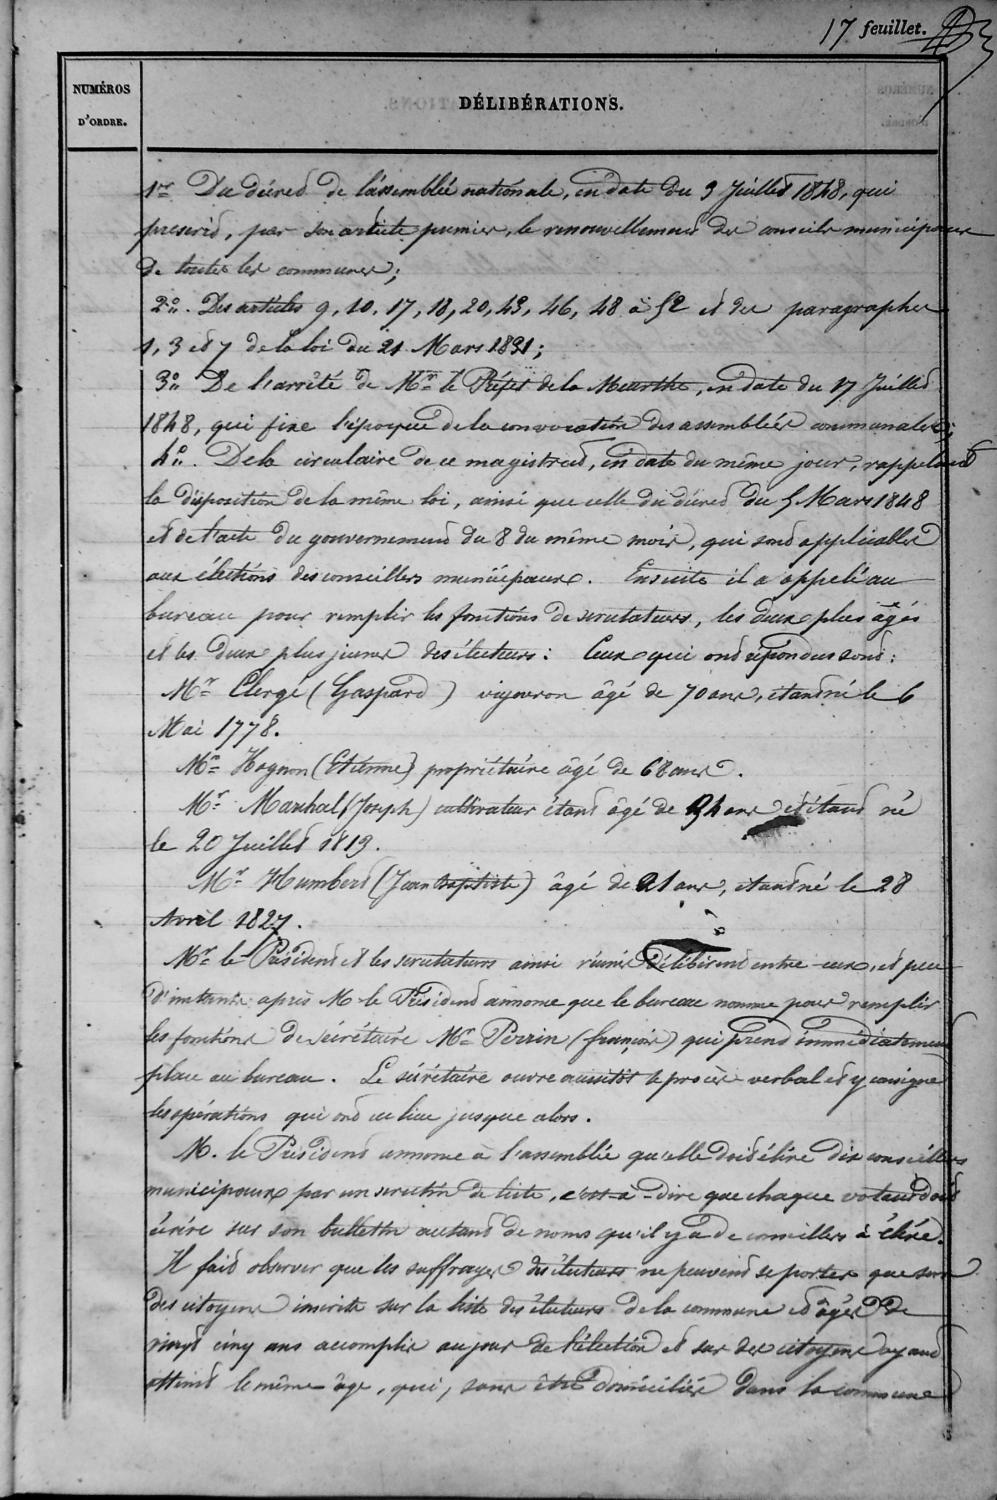 17 feuillet.
NUMÉROS
D'ORDRE.
DÉLIBÉRATIONS.
1er Du décret de l'assemblée nationale, en date du 3 Juillet 1848, qui
prescrit, par son article premier, le renouvellement des conseils municipaux
de toutes les communes;
2o. Des articles 9, 10, 17, 18, 20, 43, 46, 48 à 52 et des paragraphes
1, 3 et 7 de la loi du 21 Mars 1831;
3o De l'arrêté de Mr le Préfet de la Meurthe, en date du 17 Juillet
1848, qui fixe l'époque de la convocation des assemblées communales;
4o. De la circulaire de ce magistrat, en date du même jour, rappelant
la disposition de la même loi, ainsi que celle du décret du 5 Mars 1848
et de l'acte du gouvernement du 8 du même mois, qui sont applicables
aux élections des conseillers municipaux. Ensuite il a appelé au
bureau pour remplir les fonctions de scrutateurs, les deux plus âgés
et les deux plus jeunes des électeurs: Ceux qui ont répondu sont:
Mr Clergé (Gaspard) vigneron âgé de 70 ans, étant né le 6
Mai 1778.
Mr Hognon (Etienne) propriétaire âgé de 68 ans.
Mr Marchal (Joseph) cultivateur étant âgé de ans et étant né
le 20 Juillet 1819.
Mr Humbert (Jean Baptiste) âgé de 21 ans, étant né le 28
Avril 1827.
Mr le Président et les scrutateurs ainsi réunis délibèrent entre eux, et peu
d'instants après M. le Président annonce que le bureau nomme pour remplir
les fonctions de sécrétaire Mr Perrin (françois) qui prend immédiatement
place au bureau. Le sécrétaire ouvre aussitôt le procès-verbal et y consigne
les opérations qui ont eu lieu jusque alors.
M. le Président annonce à l'assemblée qu'elle doit élire dix conseillers
municipaux par un scrutin de liste, c'est-à-dire que chaque votant doit
écrire sur son bulletin autant de noms qu'il y a de conseillers à élire.
Il fait observer que les suffrages des électeurs ne peuvent se porter que sur
des citoyens inscrits sur la liste des électeurs de la commune et âgés de
vingt cinq ans accomplis au jour de l'élection et sur des citoyens ayant
atteint le même âge, qui, sans être domiciliés dans la commune